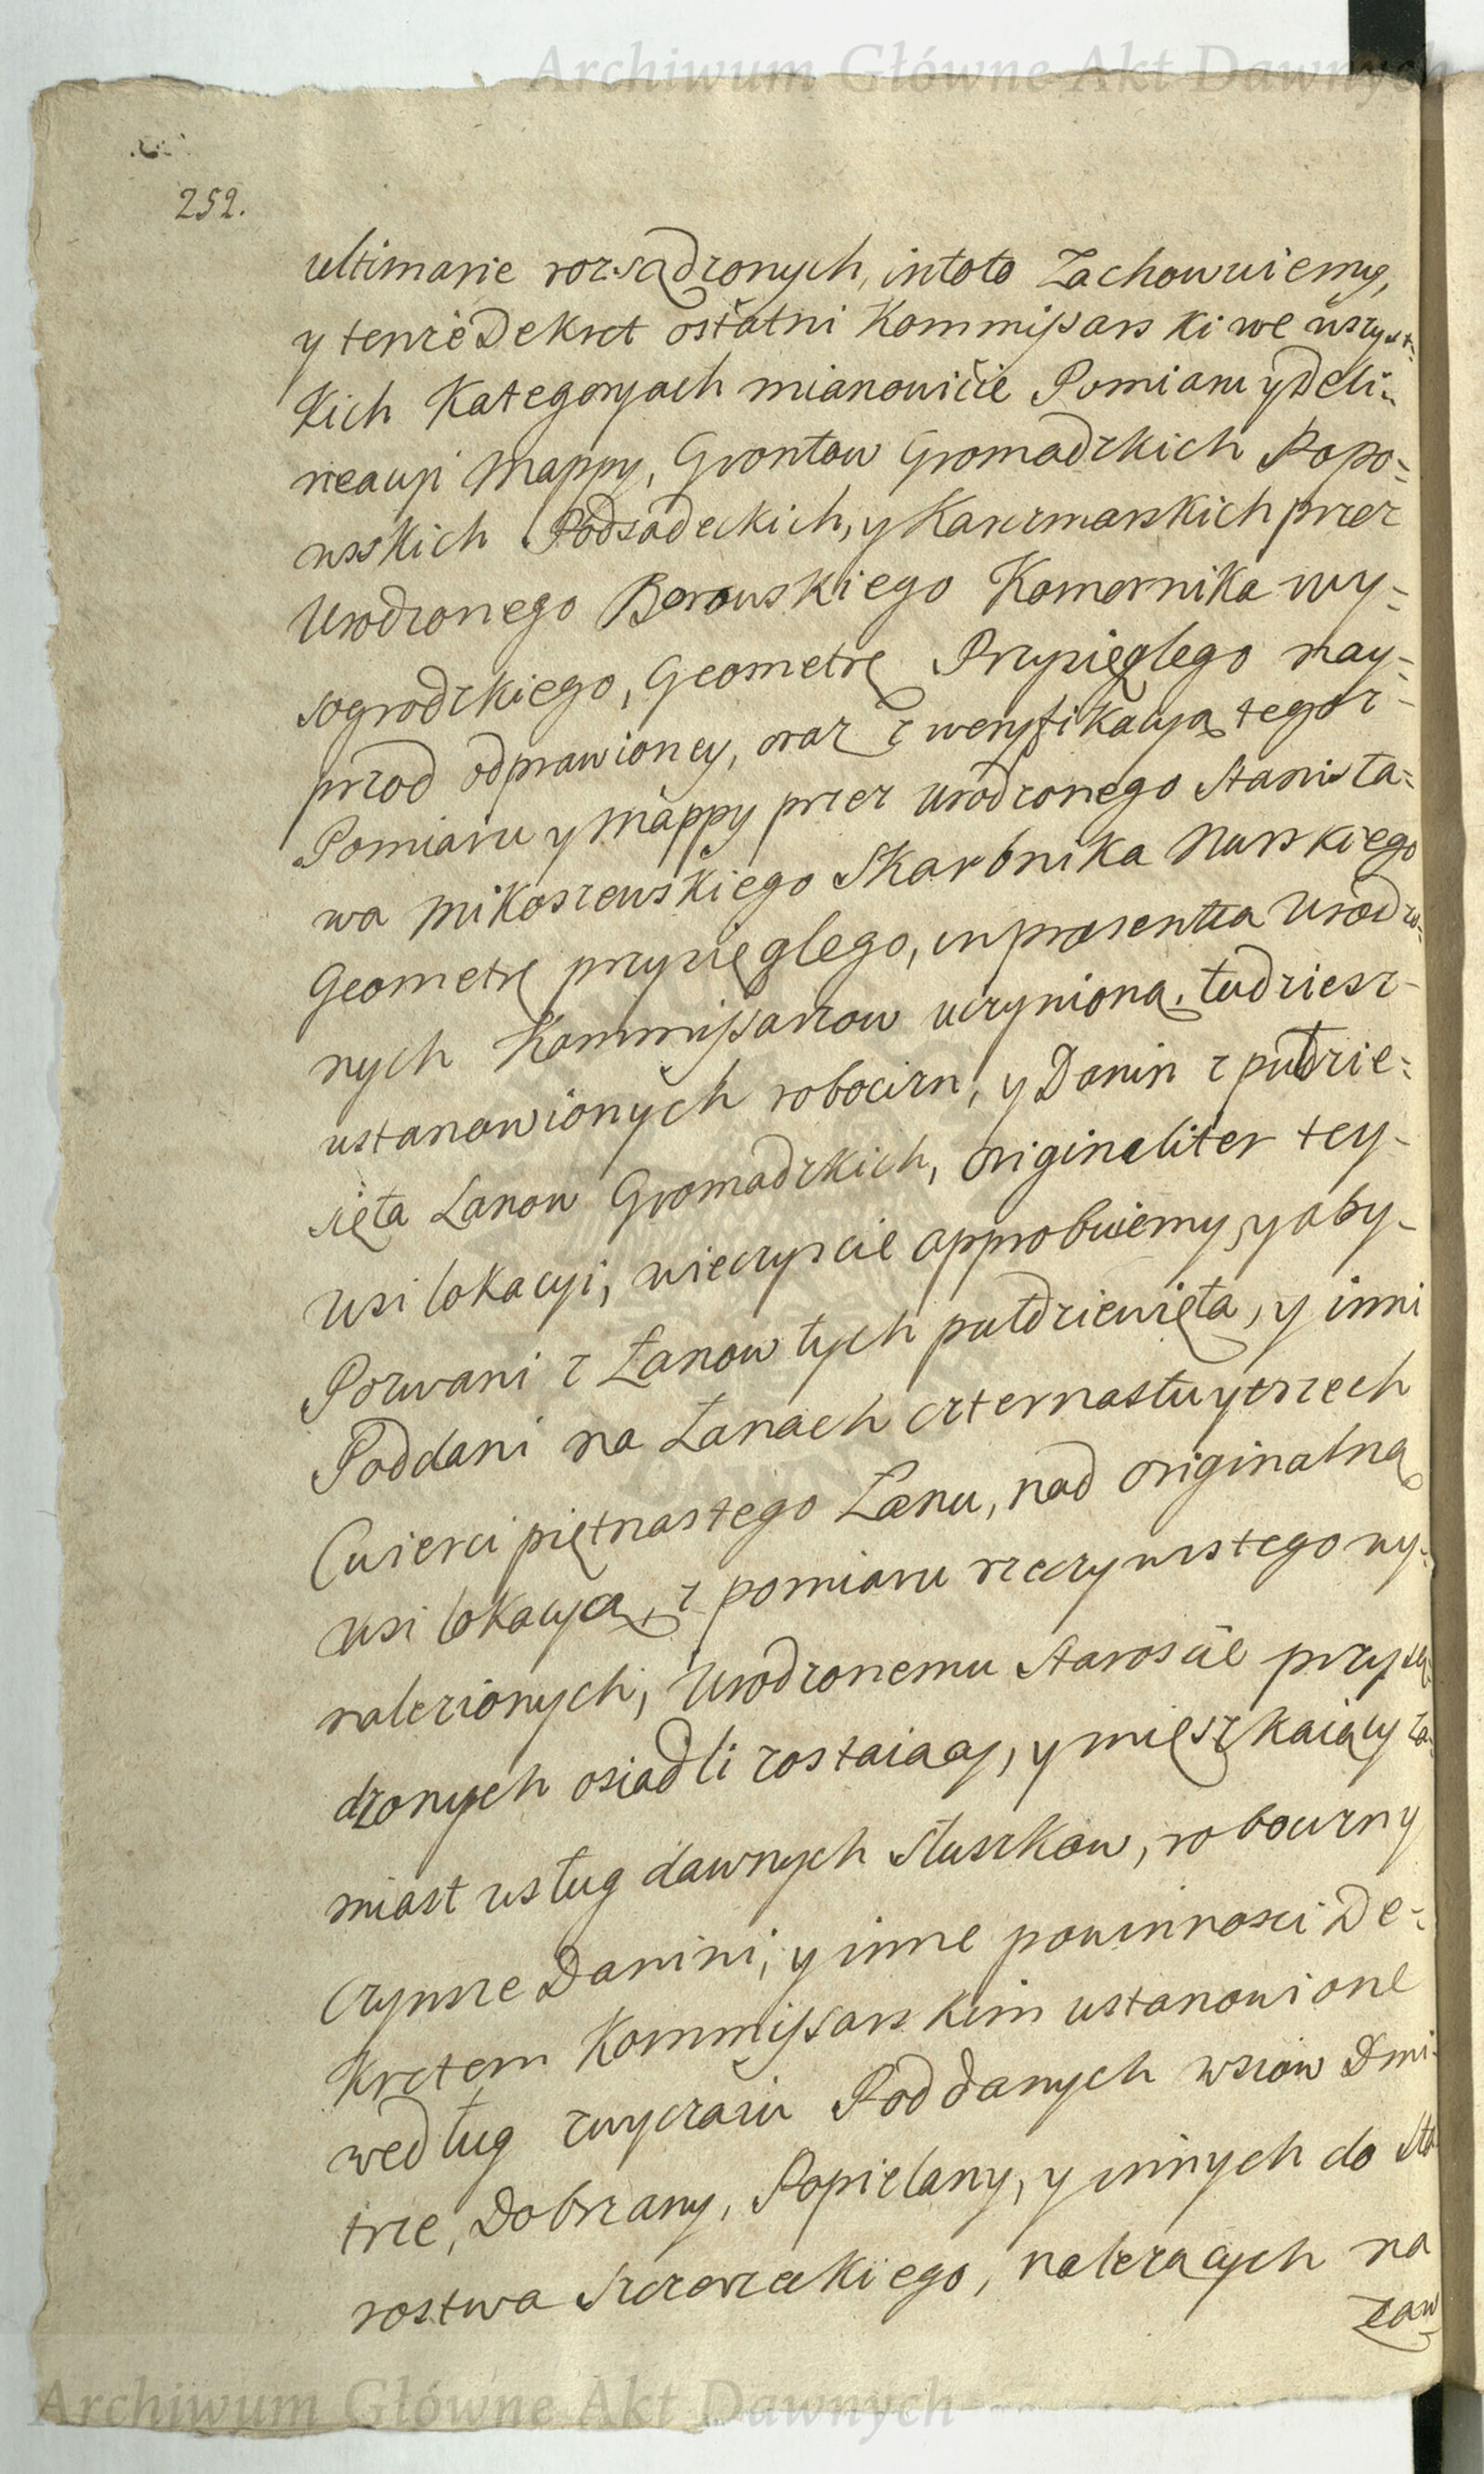 Archiwum Główne Akt Dawnych
252.
ultimarie rozsądzonych, in toto Zachowuiemy,
y tenże Dekret ostatni Kommissarski we wszyst=
kich Kategoryach mianowicie Pomiaru y Deli=
neacyi Mappy, Grontow Gromadzkich Popo=
wskich Podsadeckich, y Karczmarskich przez
Urodzonego Borowskiego Komornika wy=
sogrodzkiego, Geometrę Przysięglego nay=
przod odprawioney, oraz z weryfikacyą tegoz=
Pomiaru y Mappy przez Urodzonego Stanisła=
wa Mikoszewskiego Skarbnika Nurskiego
Geometrę przysięglego, in præsentia Urodzo=
nych Kommissarzow uczynioną, tudziesz-
ustanowionych robocizn, y Danin z pułdzie=
sięta Łanow Gromadzkich, originaliter tey-
wsi lokacyi, wieczyscie approbuiemy, y aby-
Pozwani z Łanow tych pułdziewięta, y inni
Poddani na Łanach czternastu y trzech
Cwierci piętnastego Łanu, nad originalną
wsi lokacyą, z pomiaru rzeczywistego wy=
nalezionych, Urodzonemu Staroscie przysą=
dzonych osiadli zostaiący, y mięszkaiący za=
miast usług dawnych Służkow, robocizny
Czynsze Danini, y inne powinnosci De=
kretem Kommissarskim ustanowione
według zwyczaiu Poddanych wsiow Dmi=
trze, Dobrzany, Popielany, y innych do Sta
rostwa Szczerzeckiego, nalezacych na
zaw
Archiwum Główne Akt Dawnych